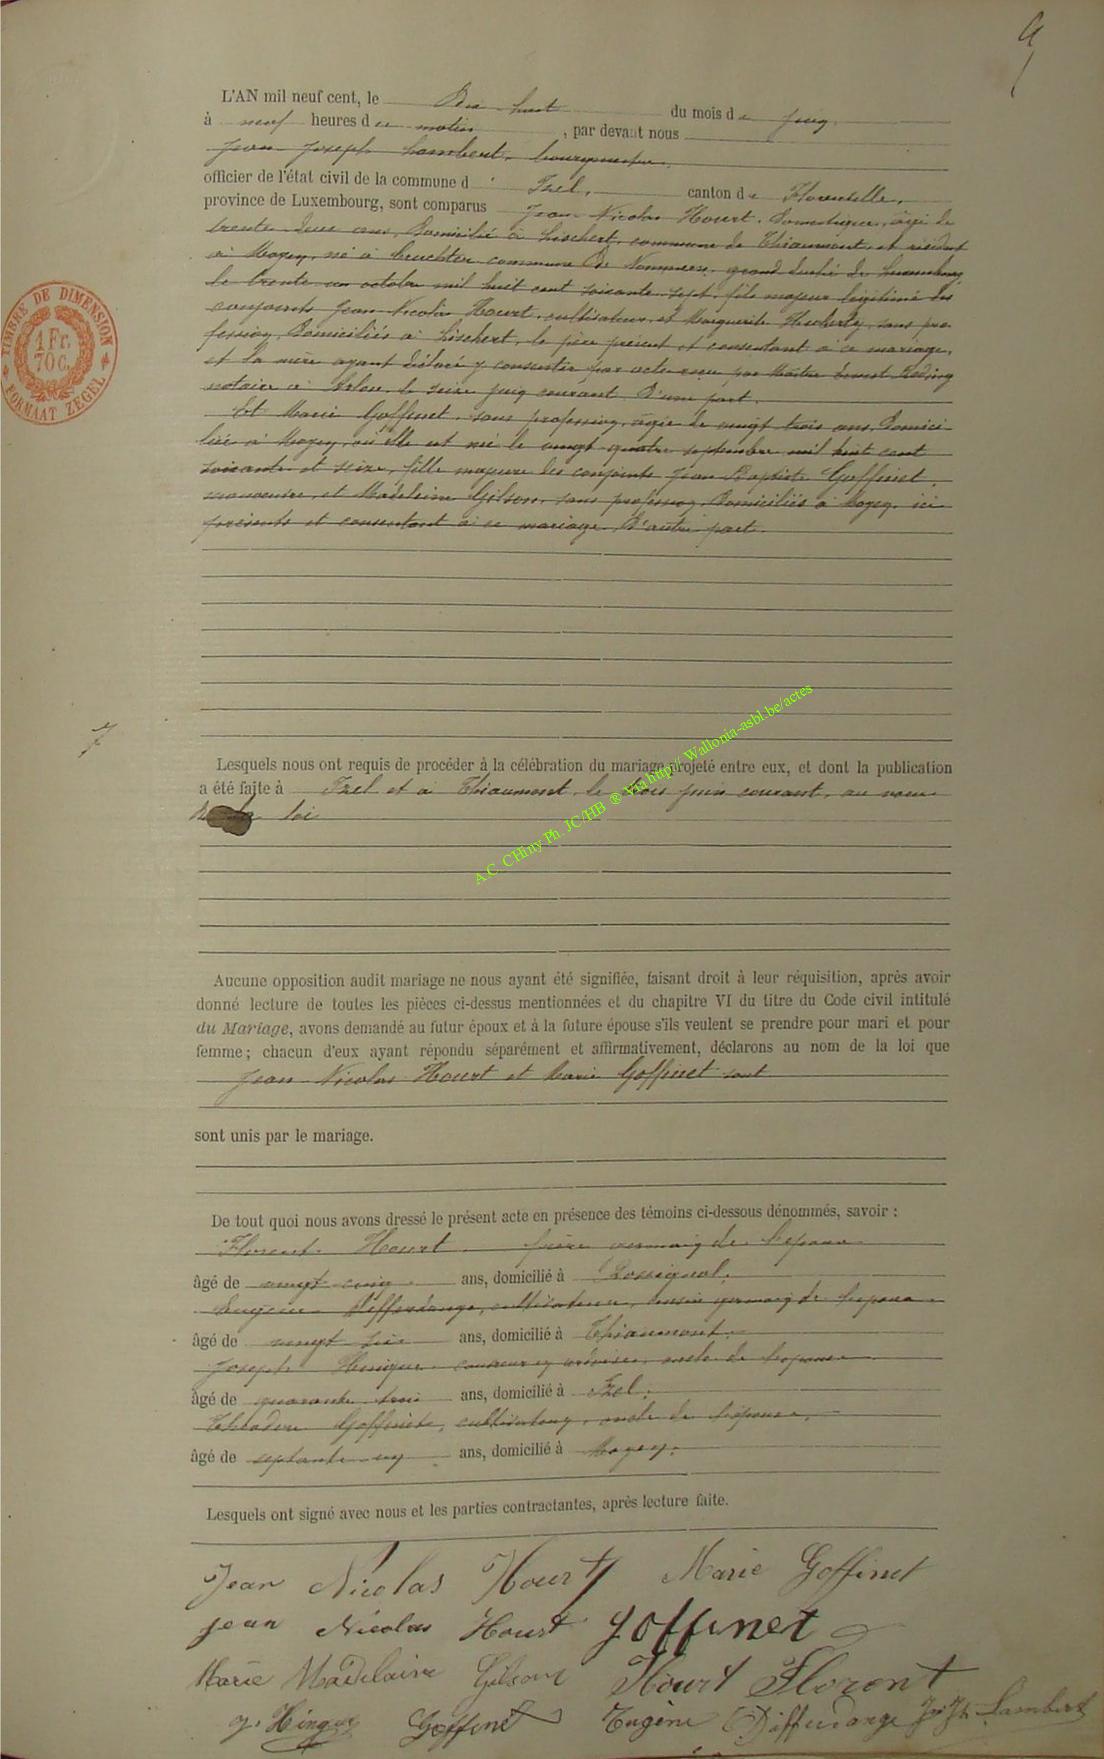 9
L'AN mil neuf cent, le Dix huit du mois de juin
à neuf heures du matin, par devant nous
Jean Joseph Lambert, bourgmestre,
officier de l'état civil de la commune d' Izel, canton de Florenville,
province de Luxembourg, sont comparus Jean Nicolas Hourt, Domestique, âgé de
trente deux ans, Domicilié à Lischert, commune de Thiaumont, et résidant
à Moyen, né à commune de Nommern, grand duché de Luxembourg
le trente un octobre mil huit cent soixante sept, fils majeur légitime des
conjoints Jean Nicolas Hourt, cultivateur, et Marguerite, sans pro
fession, Domiciliés à Lischert, le père présent et consentant à ce mariage,
et la mère ayant déclaré y consentir par acte reçu par Maître Ernest
notaire à Arlon, le seize juin courant D'une part.
Et Marie Goffinet, sans profession, âgée de vingt trois ans, Domici
liée à Moyen, où elle est née le vingt quatre septembre mil huit cent
soixante et seize, fille majeure des conjoints Jean Baptiste Goffinet,
manœuvre, et Madeleine Gilson, sans profession, Domiciliés à Moyen, ici
présents et consentant à ce mariage D'autre part.
TIMBRE DE DIMENSION
1 Fr.
70 C.
FORMAAT ZEGEL
7
Lesquels nous ont requis de procéder à la célébration du mariage projeté entre eux, et dont la publication
a été faite à Izel et à Thiaumont, le trois juin courant, au vœu
loi
A.C. CHiny Ph. JC/HB ® Via http// Wallonia-asbl.be/actes
Aucune opposition audit mariage ne nous ayant été signifiée, faisant droit à leur réquisition, après avoir
donné lecture de toutes les pièces ci-dessus mentionnées et du chapitre VI du titre du Code civil intitulé
du Mariage, avons demandé au futur époux et à la future épouse s'ils veulent se prendre pour mari et pour
femme ; chacun d'eux ayant répondu séparément et affirmativement, déclarons au nom de la loi que
Jean Nicolas Hourt et Marie Goffinet sont
sont unis par le mariage.
De tout quoi nous avons dressé le présent acte en présence des témoins ci-dessous dénommés, savoir :
Florent Hourt, frère germain de l'époux
âgé de vingt cinq ans, domicilié à Rossignol,
Eugène Differdange, cultivateur, cousin germain de l'époux
âgé de vingt six ans, domicilié à Thiaumont,
Joseph Hinque oncle de l'épouse
âgé de quarante trois ans, domicilié à Izel,
Théodore Goffinet, cultivateur, oncle de l'épouse,
âgé de septante un ans, domicilié à Moyen.
Lesquels ont signé avec nous et les parties contractantes, après lecture faite.
Jean Nicolas Hourt Marie Goffinet
Jean Nicolas Hourt Goffinet
Marie Madelaine Gilson Hourt Florent
J. Hinque Goffinet Eugène Differdange Jn Jh Lambert